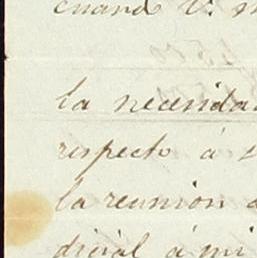 cuand V. 
la necesida
respecto á
la reunion
dicial á mi